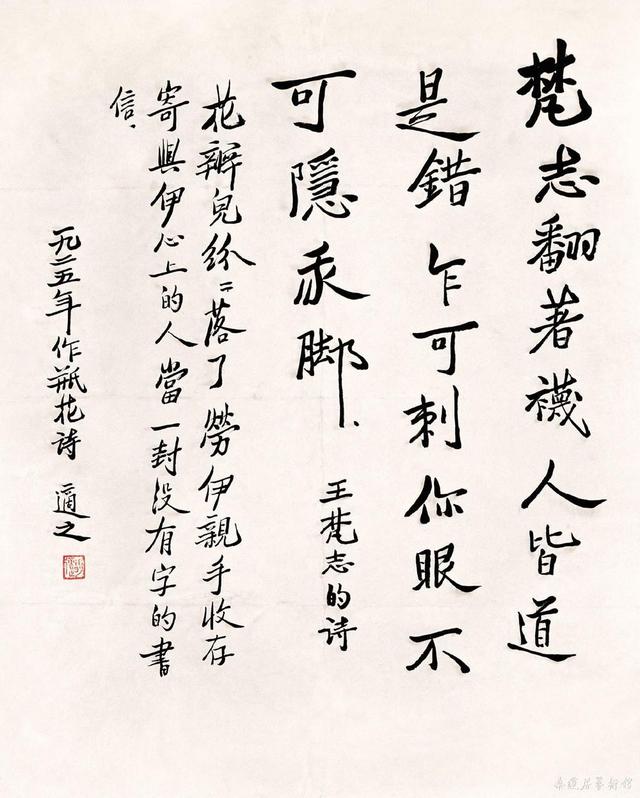 梵志翻著襪人皆道
是錯乍可刺你眼不
可隱我脚、
王梵志的詩
花瓣兒紛〻落了勞伊親手收存
寄與伊心上的人當一封沒有字的書
信、
一九二五年作瓶花詩 適之